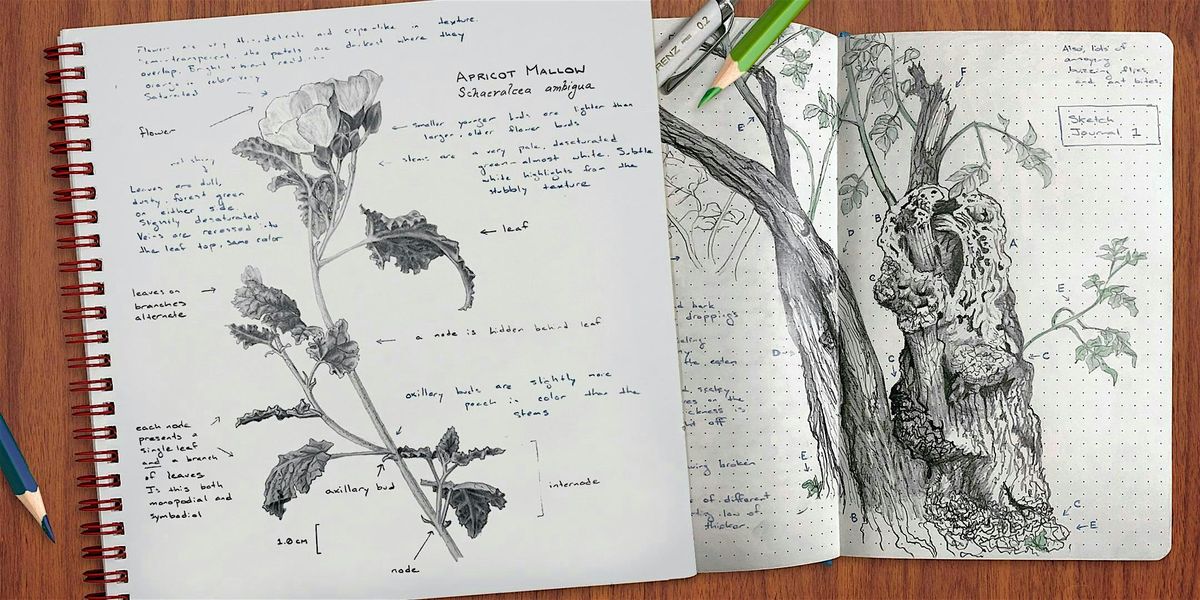 Flowers are very thin, delicate and crepe-like in texture.
Semi-transparent, the petals are darkest where they
overlap. Bright
orange in color very
Saturated
flower
APRICOT MALLOW
Sphaeralcea ambigua
smaller younger buds are lighter than
larger, older flower buds
stems are a very pale, desaturated
green-almost white. Subtle
white highlights from the
stubbly texture
not shiny
Leaves are dull,
dusty, forest green
on either side
Slightly desaturated
Veins are recessed into
the leaf top, same color
leaf
leaves on
branches
alternate
a node is hidden behind leaf
axillary buds are slightly more
peach in color than the
stems
each node
presents a
single leaf
and a branch
of leaves
Is this both
monopodial and
sympodial
axillary bud
internode
1.0 cm
node
RENZ 0.2
E
D
bark
droppings
eaten
on the
ickness is
off
broken
E
of different
law of
thicker.
B
Also, lots of
annoying
buzzing flies,
and ant bites.
Sketch
Journal 1
F
B
A
D
C
E
C
C
C
E